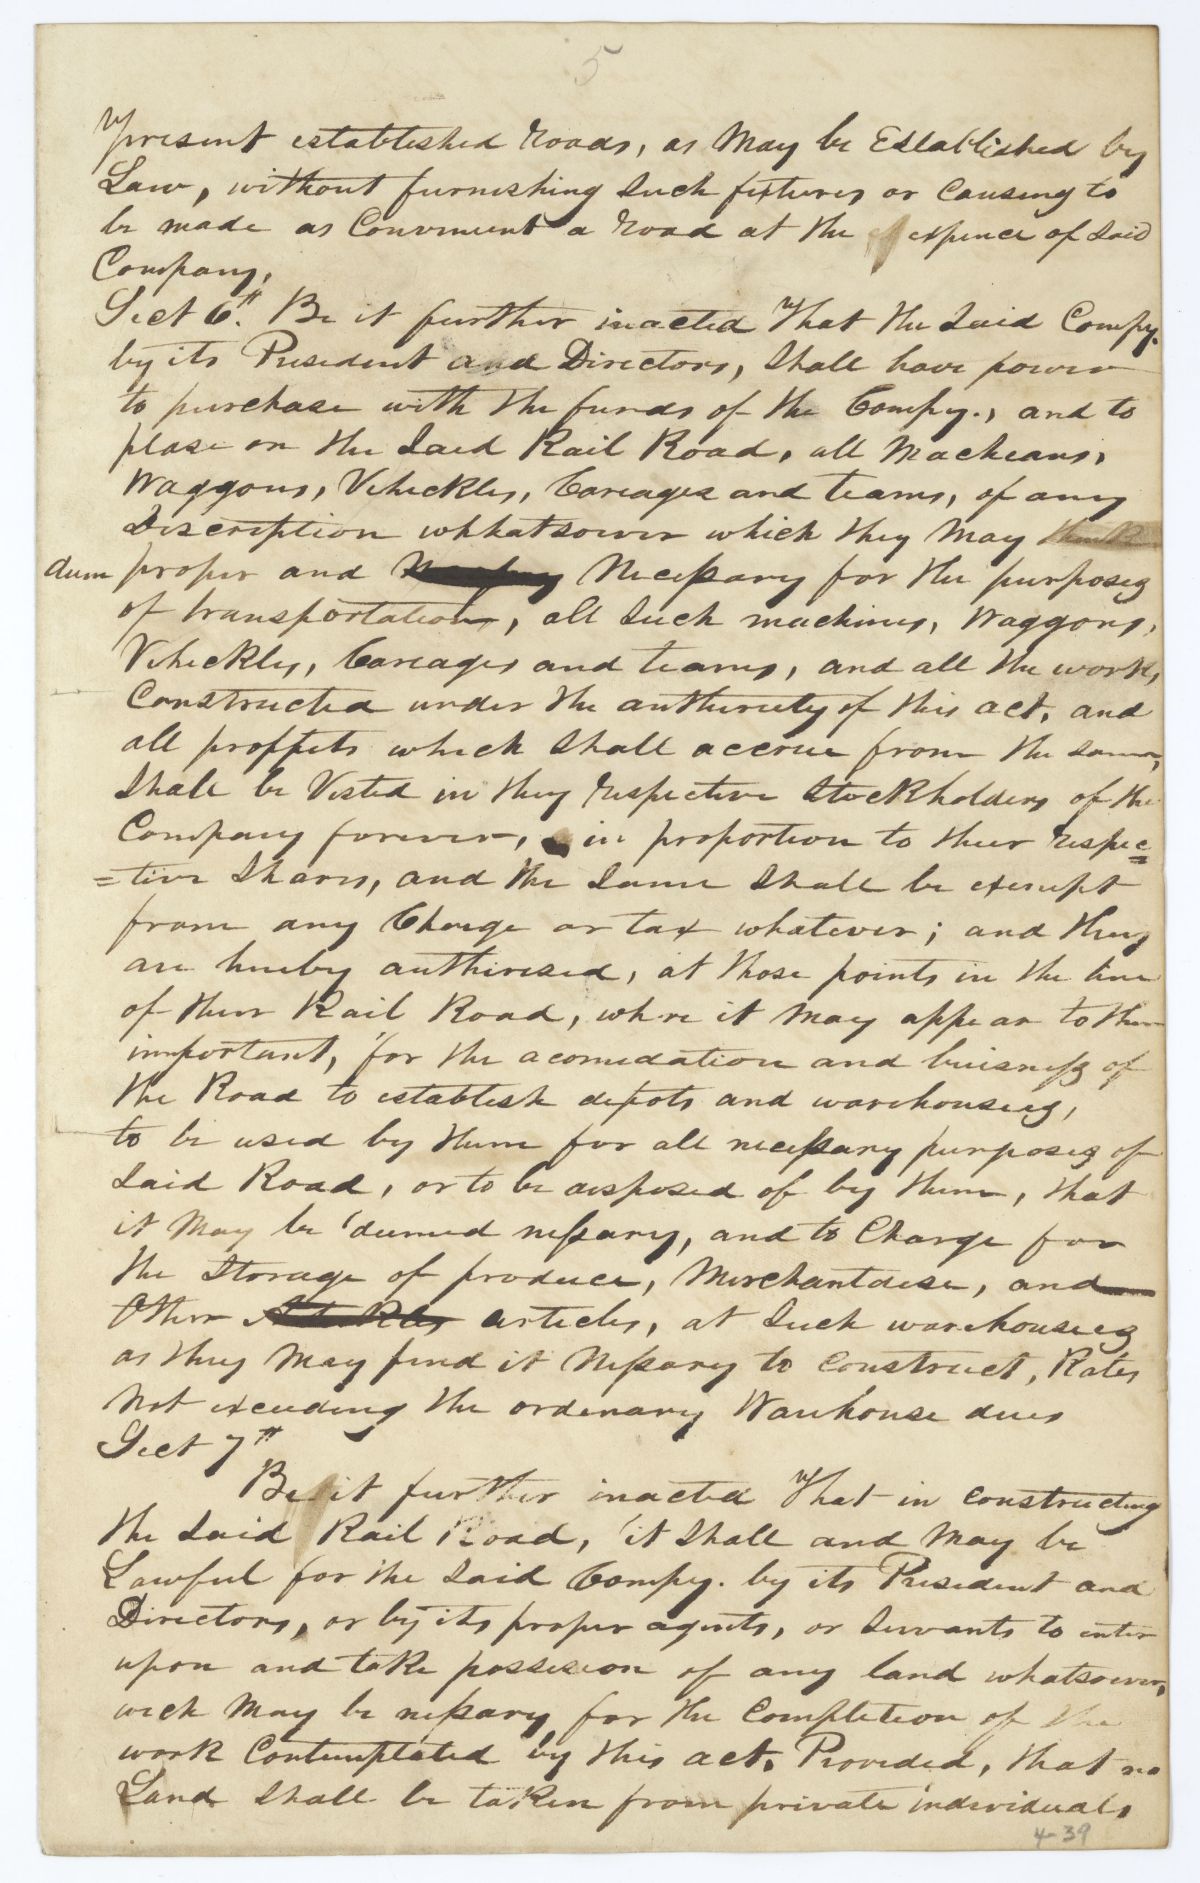 5
present established roads, as May be Established by
Law, without furnishing Such fixtures or Causing to
be made as Convenient a road at the expence of Said
Company,
Sect 6th. Be it further inacted That the Said Compy.
by its President and Directors, Shall have power
to purchase with the funds of the Compy., and to
plase on the Said Rail Road, all Macheans,
Waggons, Vehickles, Careages and teams, of any
Discription whhatsoever which they May think
dum proper and Necessary for the purposes
of transportation, all Such machines, Waggons,
Vehickles, Careages and teams, and all the works,
Constructed under the authurety of this act, and
all proffets which Shall accrue from the Same,
Shall be Vested in they respective Stockholders of the
Company forever, in proportion to their respec=
=tive Shares, and the Same Shall be exempt
from any Charge or tax whatever; and they
are hereby authirised, at those points in the line
of their Rail Road, where it May appear to them
important, for the acomedation and buisness of
the Road to establish depots and warehouses,
to be used by them for all necessary purposes of
Said Road, or to be disposed of by them, that
it May be deemed nessary, and to Charge for
the Storage of produce, Merchantdise, and
Other articles, at Such warehouses
as they May find it Nessary to Construct, Rates
Not exceeding the ordenary Warehouse dues
Sect 7th
Be it further inacted That in constructing
the Said Rail Road, it Shall and May be
Lawful for the Said Compy. by its President and
Directors, or by its proper agents, or Servants to enter
upon and take possession of any land whatsoever,
wich May be nessary for the Completion of the
work Contemplated by this act, Provided, that no
Land Shall be taken from private individuals,
4-39